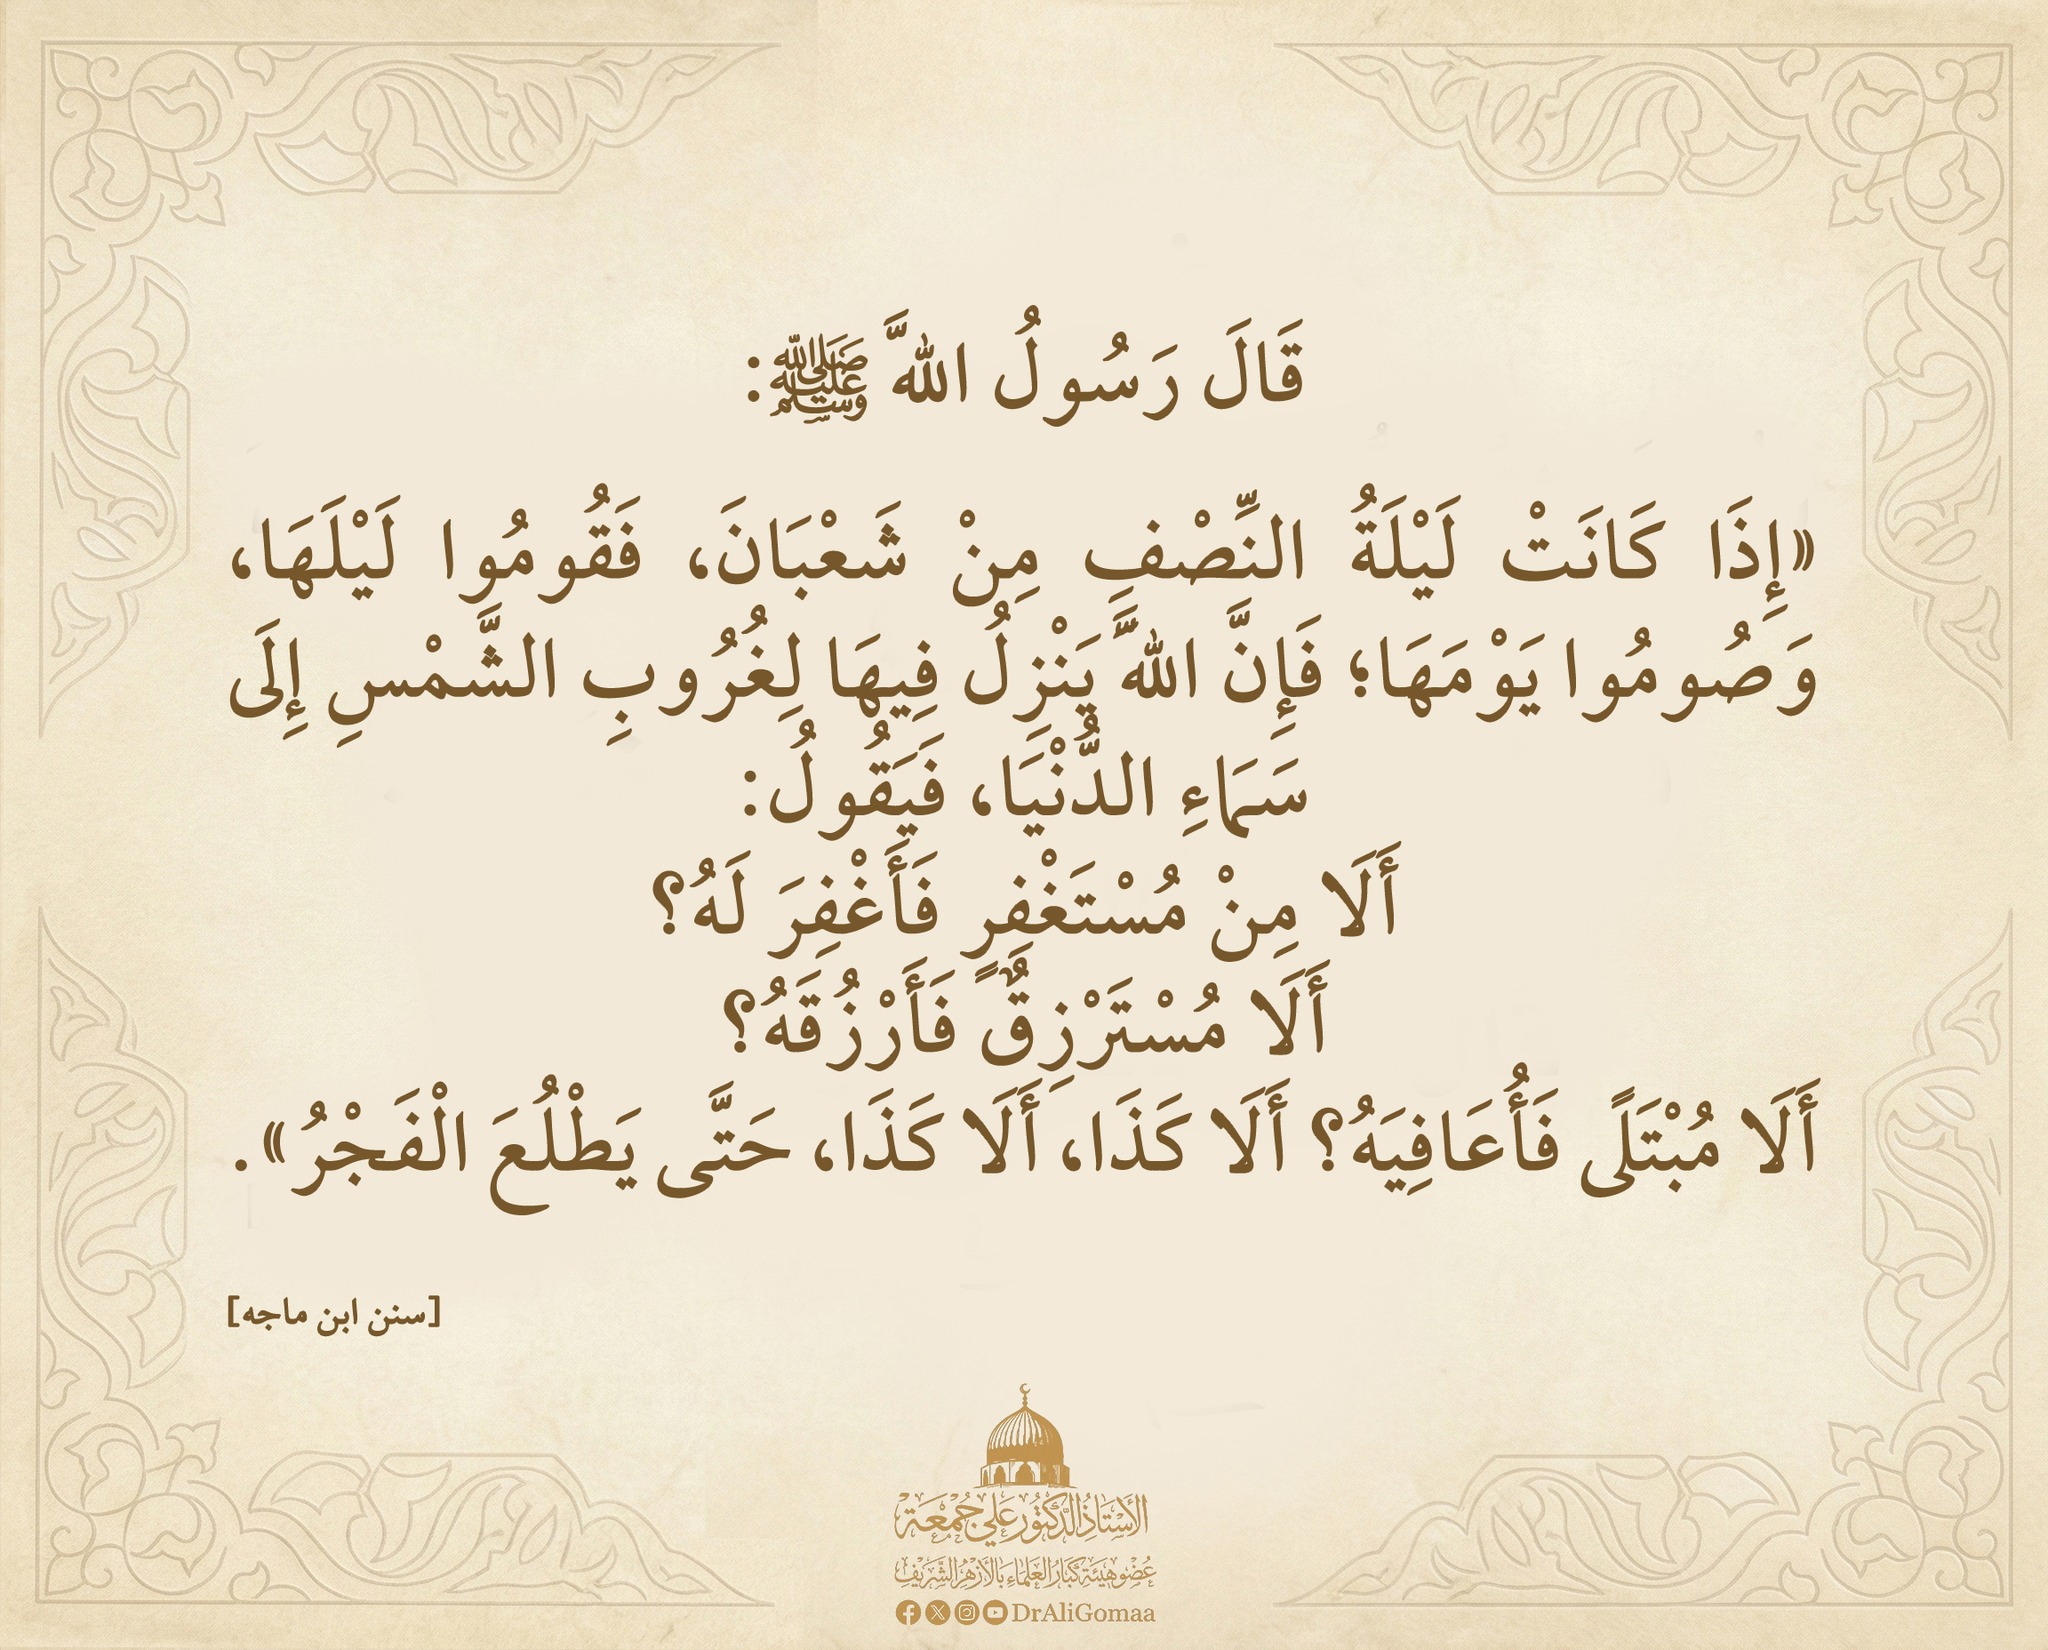 قَالَ رَسُولُ اللهَّ ﷺ:
«إِذَا كَانَتْ لَيْلَةُ النِّصْفِ مِنْ شَعْبَانَ، فَقُومُوا لَيْلَهَا،
وَصُومُوا يَوْمَهَا؛ فَإِنَّ اللهَّ يَنْزِلُ فِيهَا لِغُرُوبِ الشَّمْسِ إِلَى
سَمَاءِ الدُّنْيَا، فَيَقُولُ:
أَلَا مِنْ مُسْتَغْفِرٍ فَأَغْفِرَ لَهُ؟
أَلَا مُسْتَرْزِقٌ ً فَأَرْزُقَهُ؟
أَلَا مُبْتَلًى فَأُعَافِيَهُ؟ أَلَا كَذَا، أَلَا كَذَا، حَتَّى يَطْلُعَ الْفَجْرُ».
[سنن ابن ماجه]
الأُسْتَاذُ الدُّكتُور عَلي جُمْعَة
عُضْو هَيْئَة كِبَار العُلَمَاء بِالأَزْهَرِ الشَّرِيْفِ
DrAliGomaa